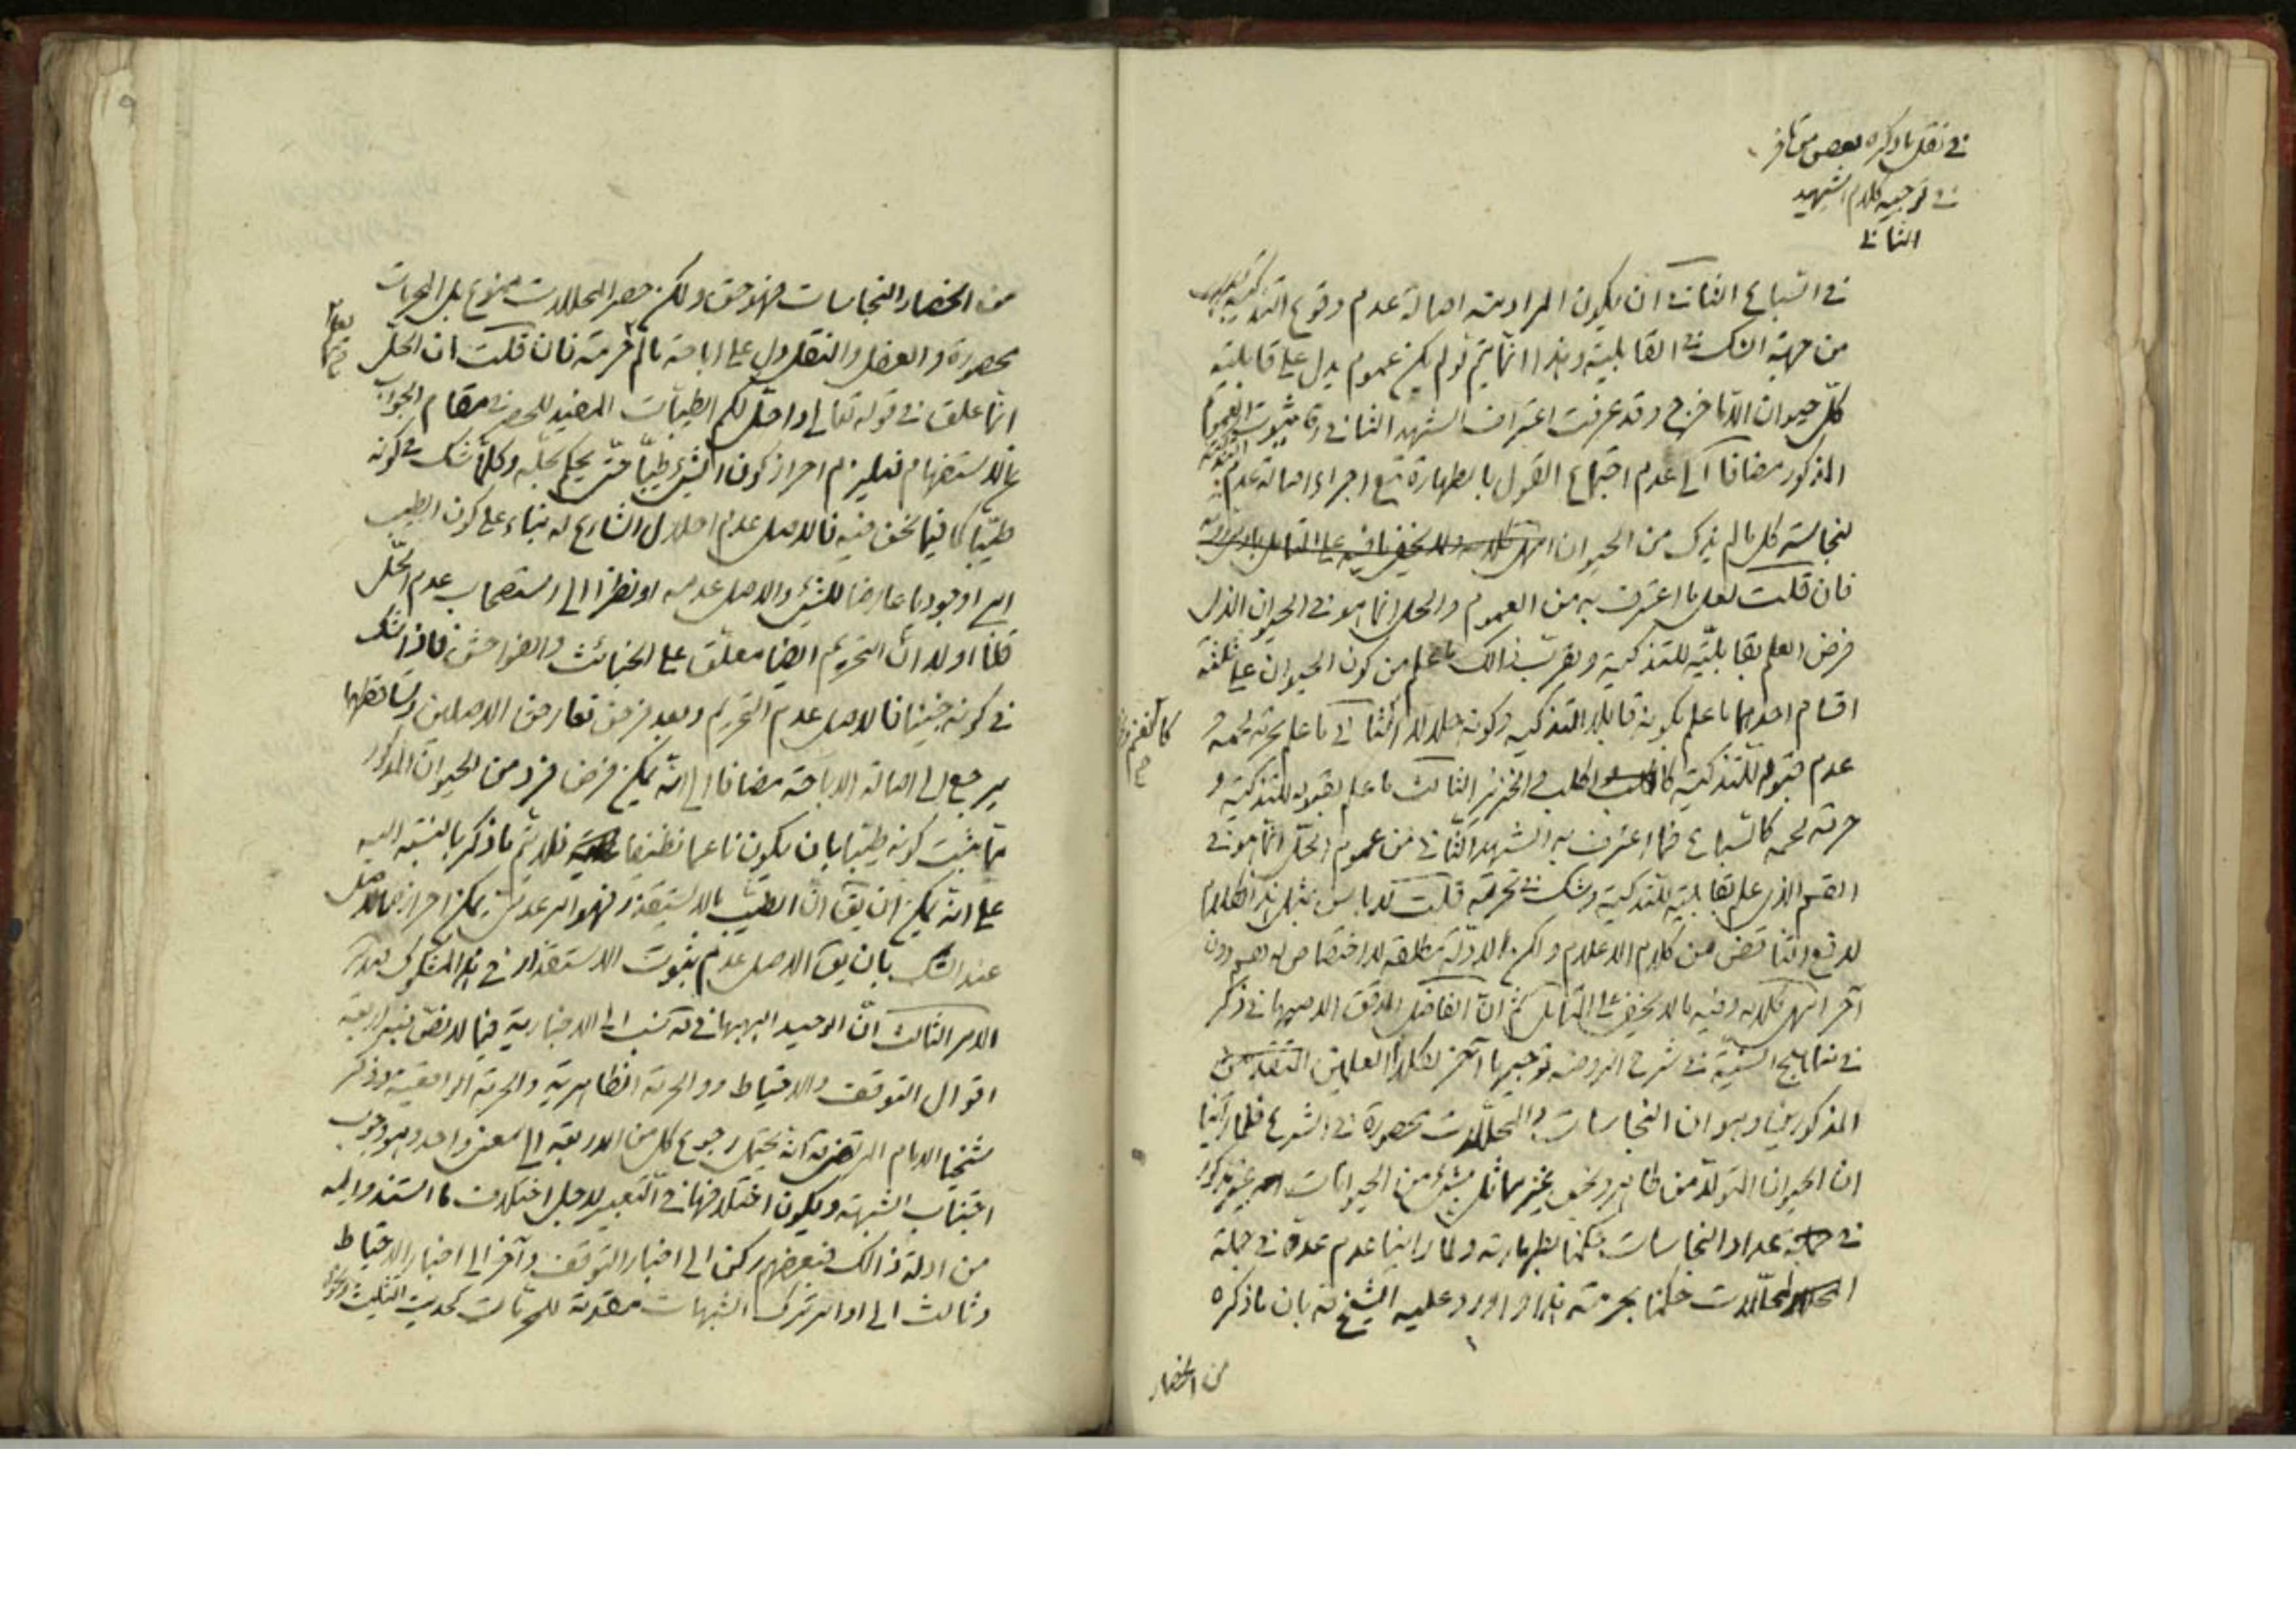 في نقل ما ذكره بعض من تاخر
في توجيه كلام الشهيد
الثاني
في السباع الثاني ان يكون المراد منه اصالة عدم وقوع التذكية
من جهة الشك في القابلية وهذا انما يتم لو لم يكن عموم يدل على قابلية
كل حيوان الا ما خرج وقد عرفت اعتراف الشهيد الثاني ره بثبوت العموم
المذكور مضافا الى عدم اجتماع القول بالطهارة مع اجراء اصالة عدم التذكية
لنجاسة كل ما لم يذك من الحيوان انتهى كلامه ولا يخفى ما فيه على المتامل
فان قلت لعل ما اعترف به من العموم والحل انما هو في الحيوان الذي
فرض العلم بقابليته للتذكية ويقرب ذالك ما علم من كون الحيوان على ثلثة
اقسام احدها ما علم بكونه قابلا للتذكية وكونه حلالا الثاني ما علم حرمة لحمه و
كالغنم
عدم قبوله للتذكية كالكلب والخنزير الثالث ما علم بقبوله للتذكية و
حرمة لحمه كالسباع فما اعترف به الشهيد الثاني من عموم الحل انما هو في
القسم الذي علم بقابليته للتذكية وشك في تحريمه قلت لا باس بمثل هذا الكلام
لدفع التناقض من كلام الاعلام ولكن الادلة مطلقة لا اختصاص له بقسم دون
آخر انتهى كلامه وفيه ما لا يخفى على المتامل ثم ان الفاضل المدقق الاصبهاني ذكر
في مناهج السنية في شرح الروضة توجيها آخر لكلام العلمين المتقدمين
المذكورين وهو ان النجاسات والمحللات محصورة في الشرع فلما راينا
ان الحيوان المتولد من طاهر ونجس بغير مماثل بشئ من الحيوانات غير مذكور
في جملة عداد النجاسات حكمنا بطهارته ولما راينا عدم عده في جملة
المحللات حكمنا بحرمته هذا واورد عليه الشيخ ره بان ما ذكره
من انحصار
من انحصار النجاسات فهو حق ولكن حصر المحللات ممنوع بل المحرمات
محصورة والعقل والنقل دل على اباحة ما لم حرمته فان قلت ان الحل
يعلم
انما علق في قوله تعالى واحل لكم الطيبات المفيد للحصر في مقام الجواب
عن الاستفهام فيلزم احراز كون الشئ طيبا حتى يحكم بحله وكلما شك في كونه
طيبا كما فيما نحن فيه فالاصل عدم احلال الشارع له بناء على كون الطيب
امرا وجوديا عارضا للشئ والاصل عدمه او نظرا الى استصحاب عدم الحل
قلنا اولا ان التحريم ايضا معلق على الخبائث والفواحش فاذا شك
في كونه خبيثا فالاصل عدم التحريم وبعد فرض تعارض الاصلين وتساقطهما
يرجع الى اصالة الاباحة مضافا الى انه يمكن فرض فرد من الحيوان المذكور
مما ثبت كونه طيبا بان يكون ناعما نظيفا فلا يتم ما ذكر بالنسبة اليه
على انه يمكن ان يق ان الطيب ما لا يستقذر فهو امر عدمي يمكن احرازه بالاصل
عند الشك بان يق الاصل عدم ثبوت الاستقذار في هذا المشكوك
الامر الثالث ان الوحيد البهبهاني ره نسب الى الاخبارية فيما لا نص فيه اربعة
اقوال التوقف والاحتياط والحرمة الظاهرية والحرمة الواقعية وذكر
شيخنا الامام المرتضى ره انه يحتمل رجوع كل من الاربعة الى معنى واحد وهو وجوب
اجتناب الشبهة ويكون اختلافها في التعبير لاجل اختلاف ما استندوا اليه
من ادلة ذالك فبعضهم ركن الى اخبار التوقف وآخر الى اخبار الاحتياط
وثالث الى اوامر ترك الشبهات مقدمة للمحرمات كحديث التثليث